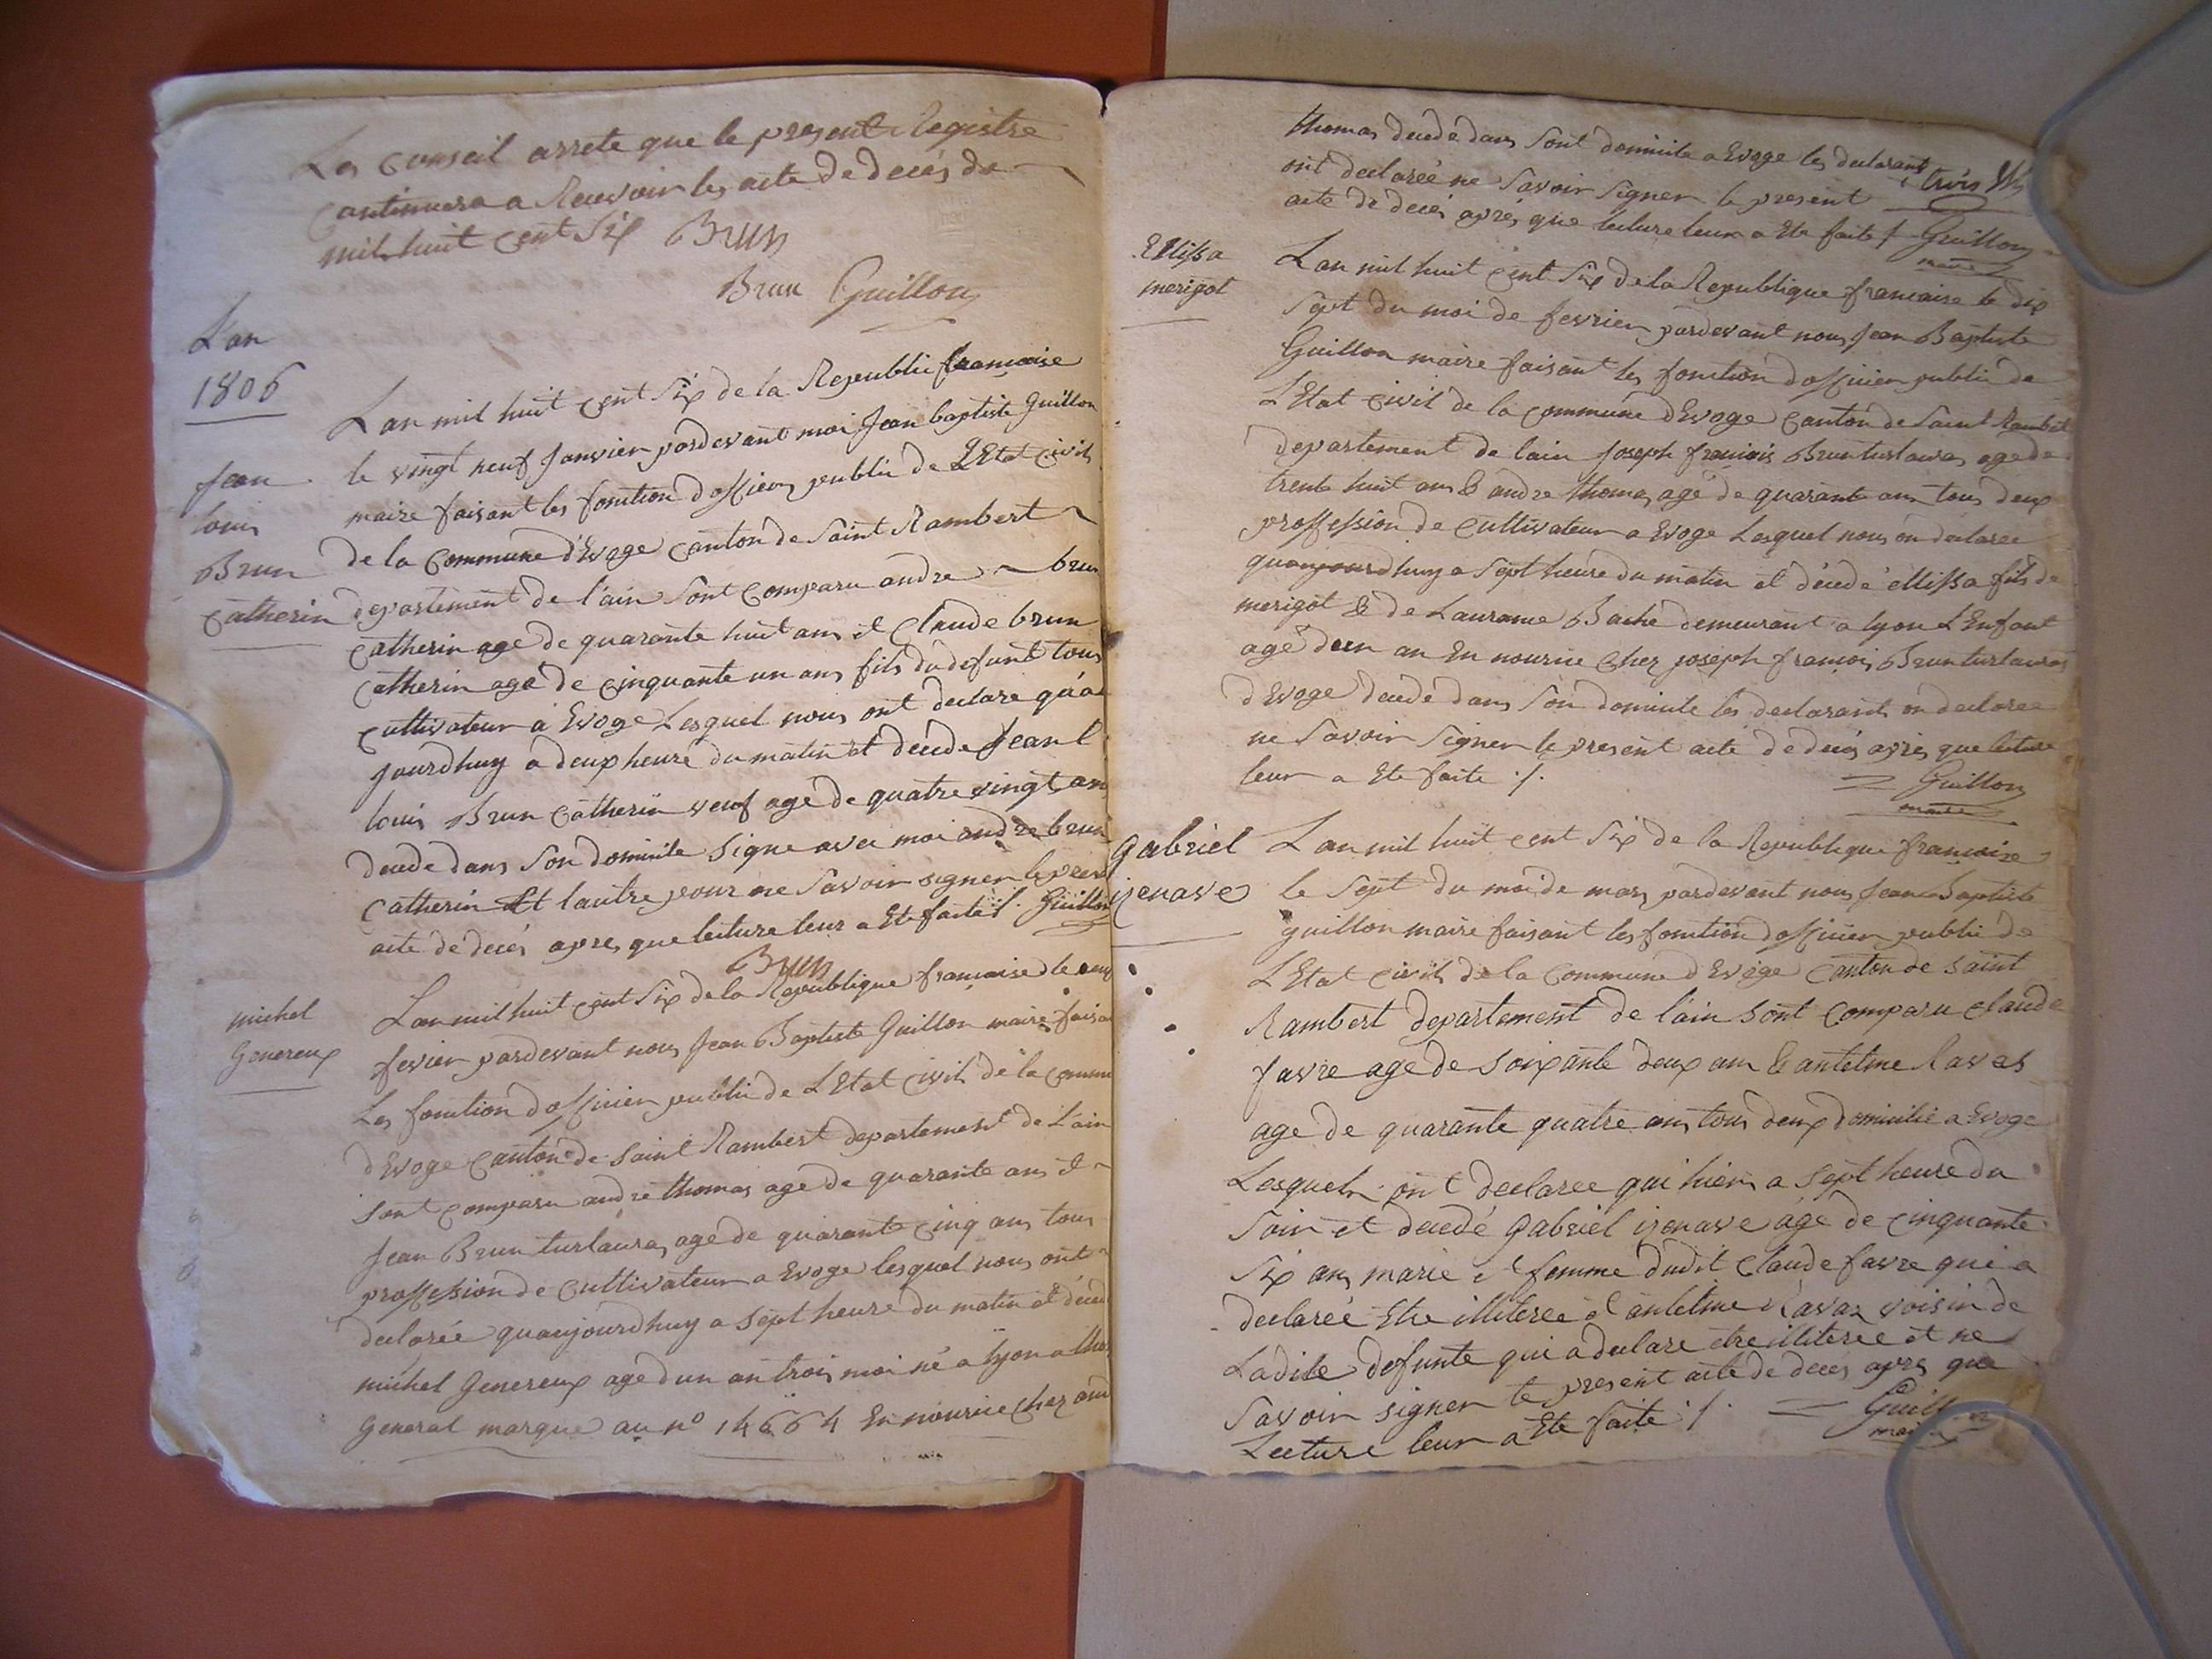 Les Conseil arrete que le present Registre
Continuera a Recevoir les acte de decés de
mil huit cent Six Brun
Brun Guillon
L'an
1806
Jean
louis
Brun
Catherin
Lan mil huit cent Six de la Republic francaise
le vingt neuf Janvier pardevant moi Jean baptiste Guillon
maire faisant les fonction dofficier public de LEtat civil
de la Commune d'Evoge canton de Saint Rambert
departement de l'ain Sont Comparu andre brun
Catherin age de quarante huit ans et Claude brun
Catherin age de cinquante un ans fils du defunt tous
cultivateur a Evoge Lesquel nous ont declare qu'au
jourdhuy a deux heure du matin et decede Jean l
louis Brun Catherin veuf age de quatre vingt ans
decede dans Son domicile Signe avec moi andre brun
Catherin Et lautre pour ne Savoir signer le present
acte de decés apres que lecture leur a Ete faite ./. Guillon
Brun
michel
Genereux
Lan mil huit cent Six de la Republique francaise le neuf
fevier pardevant nous Jean Baptiste Guillon maire faisa
Les fonction dofficier public de LEtat civil de la commu
dEvoge Canton de Saint Rambert departement de L'ain
Sont comparu andré thomas age de quarante ans et
Jean Brun turlauras age de quarante cinq ans tous
proffession de Cultivateur a Evoge lesquel nous ont
declarée quaujourdhuy a Sept heure du matin et décede
michel Genereux age dun an trois moi né a lyon a lho
General marque au nº 14664 En nourice chez and
thomas decede dans Sont domicile a Evoge les declarant
ont declareé ne Savoir Signer le present trois
acte de decés aprés que lecture leur a Ete faite / Guillon
maire
Ellissa
merigot
Lan mil huit cent Six de la Republique francaise le dix
Sept du moi de fevrier pardevant nous Jean Baptiste
Guillon maire faisant les fonction dofficier public de
LEtat civil de la commune dEvoge Canton de Saint Rambert
departement de lain Joseph francois Brun turlauras age de
trente huit ans & andre thomas agé de quarante ans tous deux
proffession de Cultivateur a Evoge Lesquel nous on declaree
quaujourdhuy a Sept heure du matin et décedé ellissa fils de
merigot & de Laurance Bache demeurant a lyon LEnfant
agé deun an En nourice Chez joseph francois Brun turlauras
dEvoge decedé dans Son domicile les declarants on declaree
ne Savoir Signer le present acte de decés aprés que lecture
leur a Ete faite ./. Guillon
maire
Gabriel
izenave
Lan mil huit cent Six de la Republique francaise
le Sept du moi de mars pardevant nous Jean Baptiste
guillon maire faisant les fonction dofficier public de
LEtat civil de la Commune dEvoge Canton de Saint
Rambert departement de lain Sont Comparu claude
favre age de Soixante deux ans & antelme Ravas
age de quarante quatre ans tous deux domicilie a Evoge
Lesquels ont declaree qui hier a Sept heure du
Soir et decedé Gabriel izenave agé de cinquante
Six ans marie et femme dudit Claude favre qui a
declareé Etre illiteree et antelme Ravaz voisin de
Ladite defunte qui a declare etre illiteree et ne
Savoir signer le present acte de deces apres que
Lecture leur a Ete faite ./. Guill